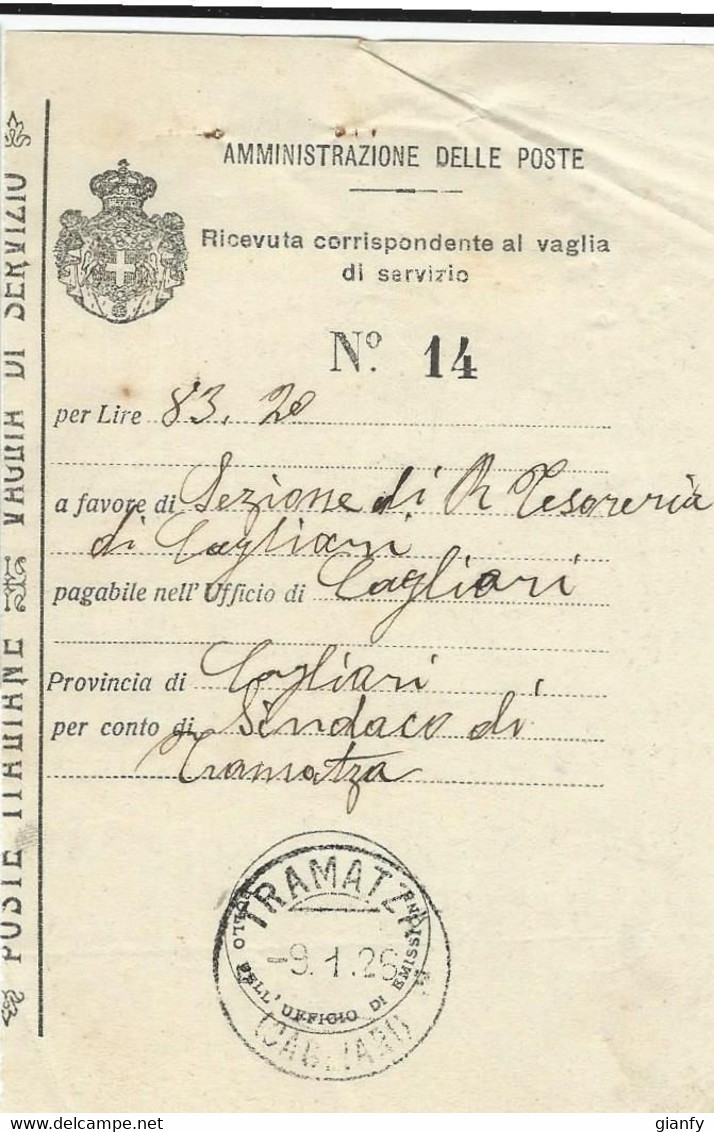 AMMINISTRAZIONE DELLE POSTE
Ricevuta corrispondente al vaglia
di servizio
Nº. 14
per Lire 83.20
a favore di Sezione di R Tesoreria
di Cagliari
pagabile nell' Ufficio di Cagliari
Provincia di Cagliari
per conto di Sindaco di
Tramatza
POSTE ITALIANE VAGLIA DI SERVIZIO
TRAMATZA
BOLLO DELL'UFFICIO DI EMISSIONE
-9.1.26
(CAGLIARI)
gianfy